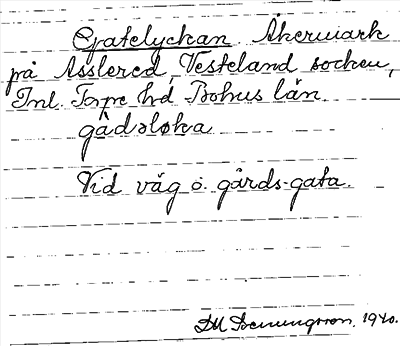 Gatelyckan Åkermark
på Asslered, Vesteland socken,
Inl. Torpe hd Bohus län.
gådsloka
Vid väg o. gårds-gata.
1940.